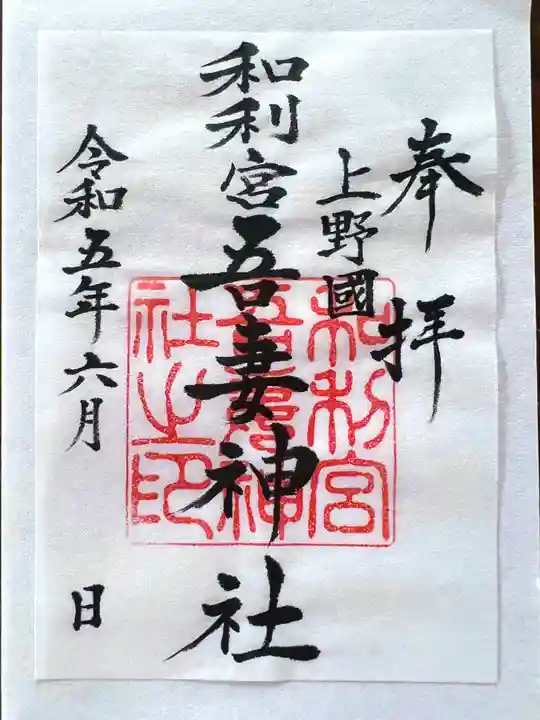 奉拝
上野國
和利宮吾妻神社
令和五年六月 日
和利宮
吾妻神
社之印